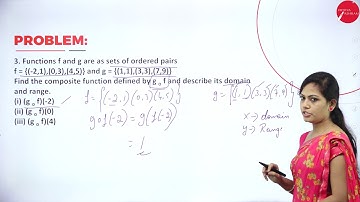 PROBLEM:
3. Functions f and g are as sets of ordered pairs
f = {(-2,1),(0,3),(4,5)} and g = {(1,1),(3,3),(7,9)}
Find the composite function defined by g o f and describe its domain
and range.
(i) (g o f)(-2)
(ii) (g o f)(0)
(iii) (g o f)(4)
f = {(-2,1)(0,3)(4,5)} g = {(1,1)(3,3)(7,9)}
gof(-2) = g(f(-2)
= 1
x → domain
y → Range